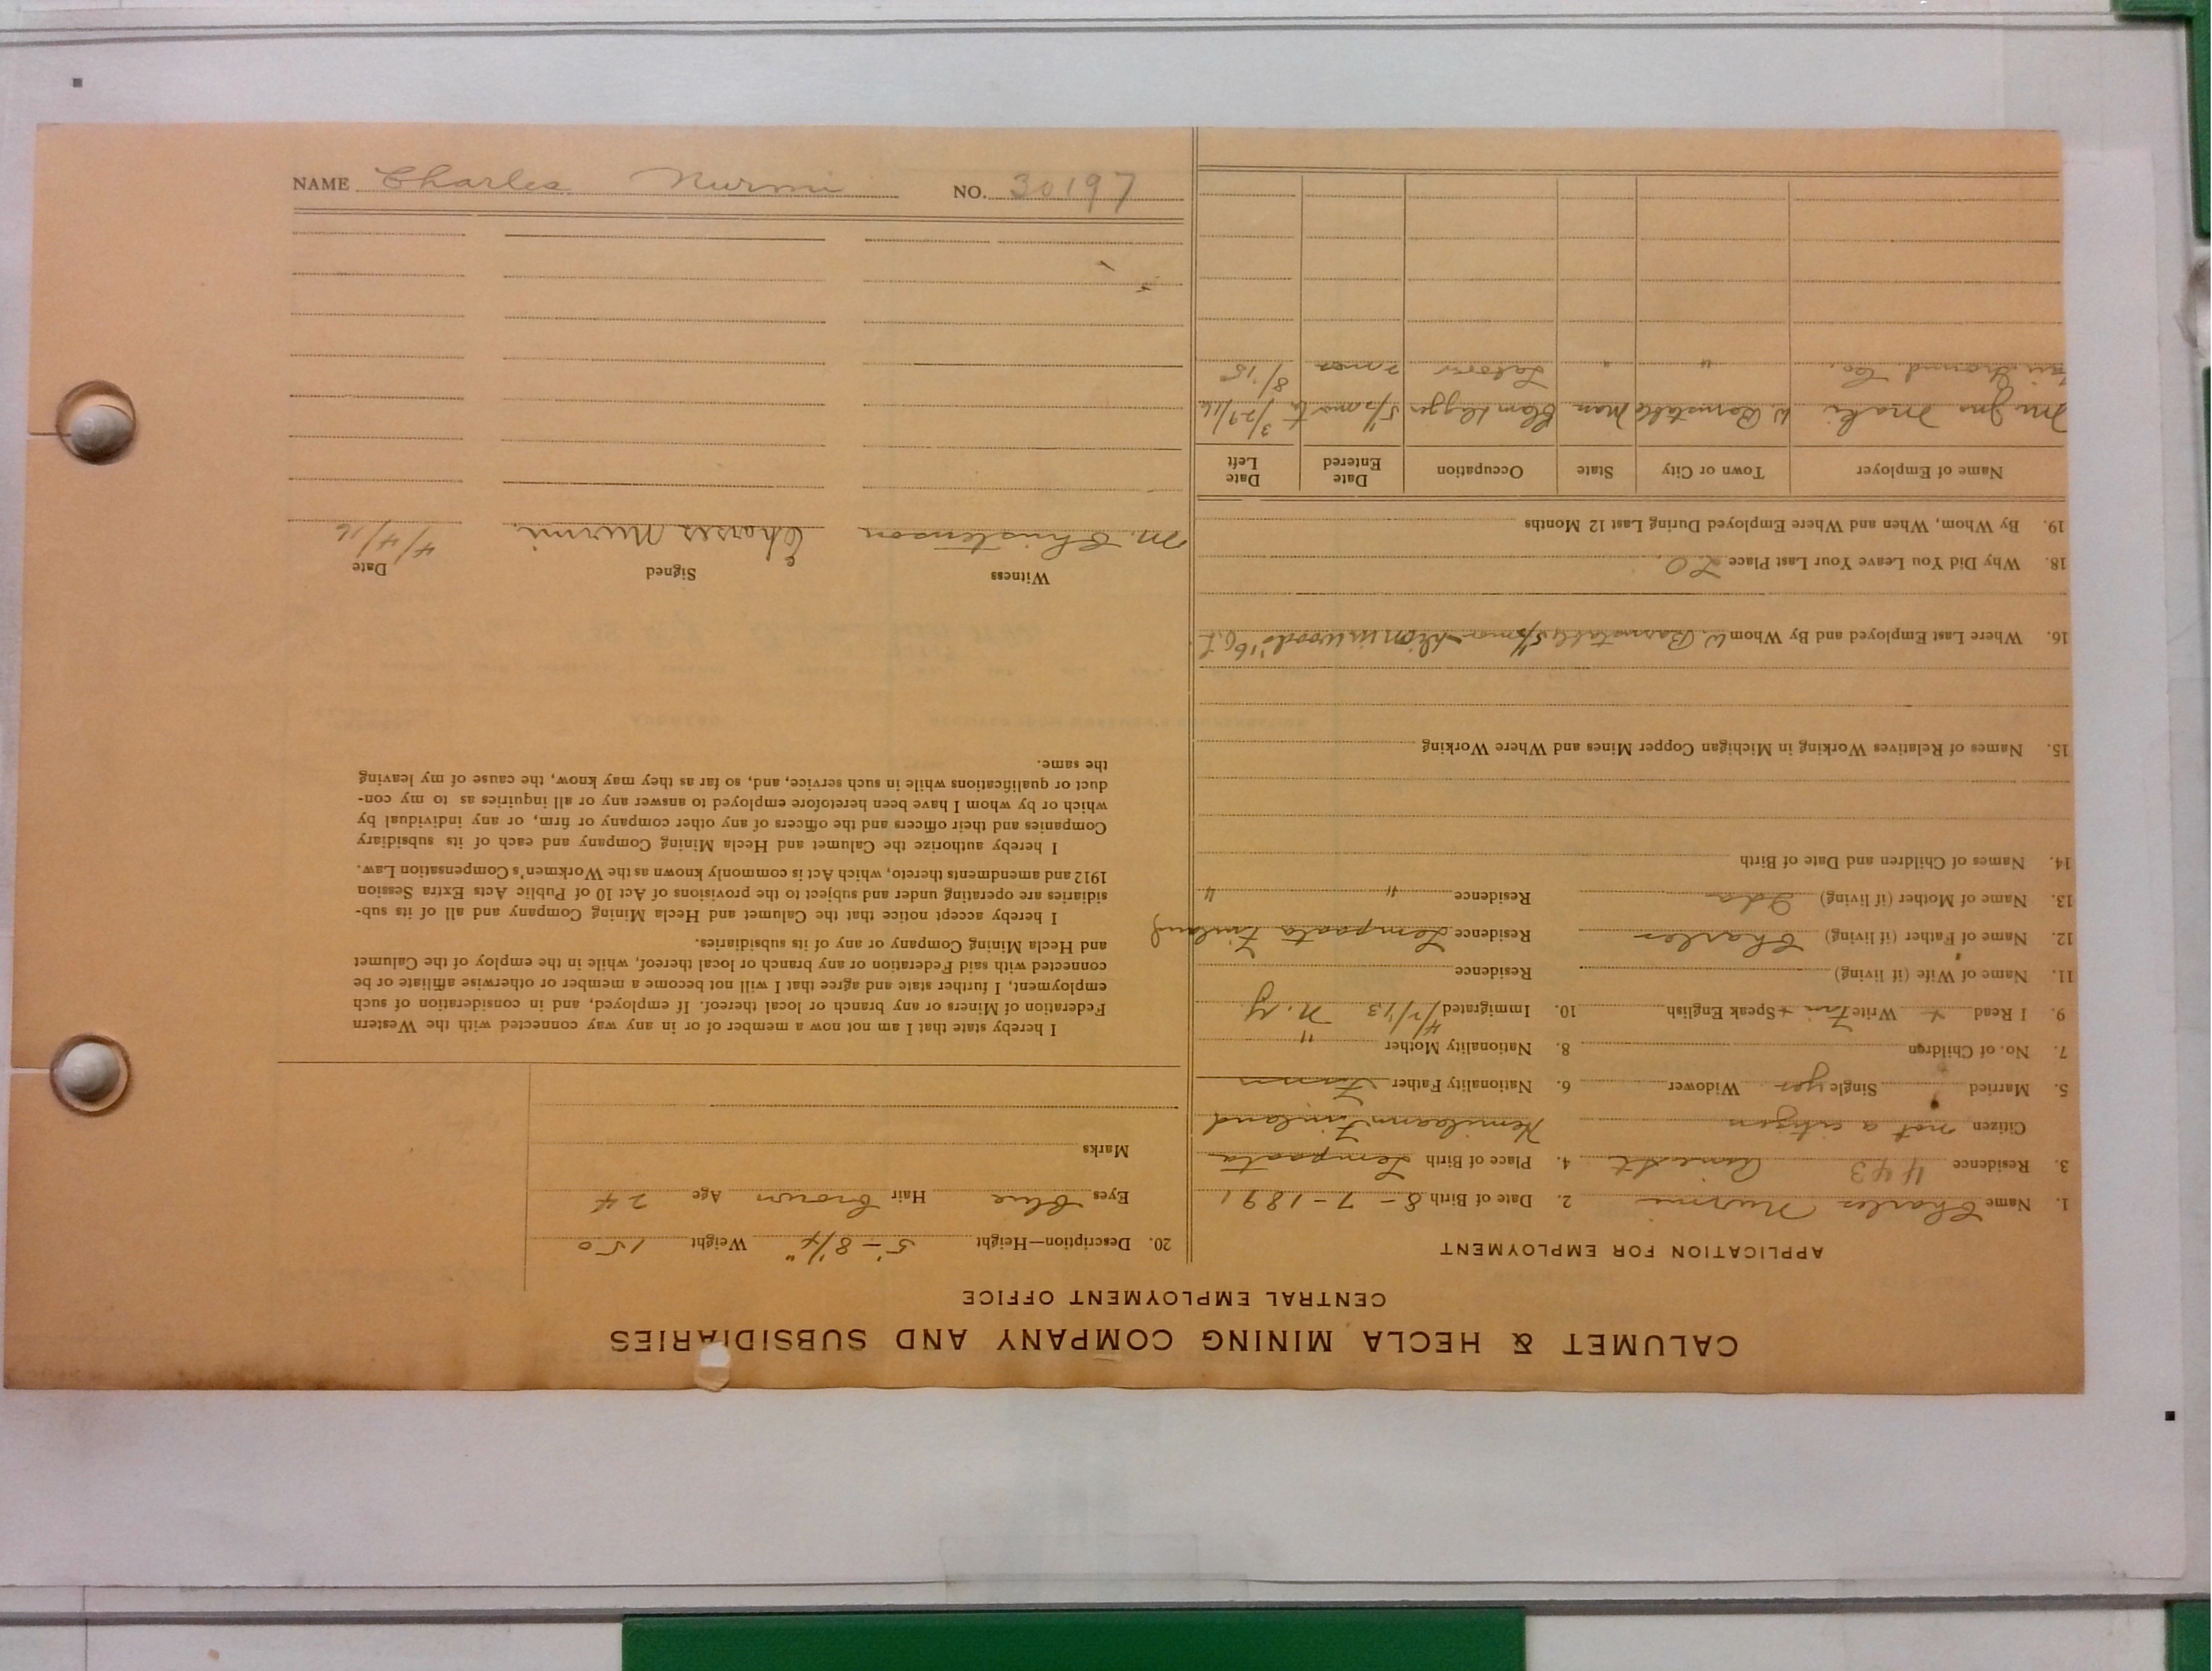 CALUMET & HECLA MINING COMPANY AND SUBSIDIARIES
CENTRAL EMPLOYMENT OFFICE
APPLICATION FOR EMPLOYMENT
1. Name Charles Nurmi 2. Date of Birth 8-7-1891
3. Residence 443 4. Place of Birth Lempaata
Citizen not a citizen Finland
5. Married Single yes Widower 6. Nationality Father
7. No. of Children 8. Nationality Mother "
9. I Read Write Speak English 10. Immigrated 4/2/13 N.Y.
11. Name of Wife (if living) Residence
12. Name of Father (if living) Charles Residence Lempaata Finland
13. Name of Mother (if living) Ida Residence " "
14. Names of Children and Date of Birth
15. Names of Relatives Working in Michigan Copper Mines and Where Working
16. Where Last Employed and By Whom W. Barnstable 5½ mos in woods
18. Why Did You Leave Your Last Place
19. By Whom, When and Where Employed During Last 12 Months
Name of Employer Town or City State Occupation Date Entered Date Left
Jno Maki W. Barnstable Clam digger 5½ mos 3/29/16
Co. " " Laborer mos 8/15
20. Description—Height 5'-8¼" Weight 150
Eyes blue Hair brown Age 24
Marks
I hereby state that I am not now a member of or in any way connected with the Western
Federation of Miners or any branch or local thereof. If employed, and in consideration of such
employment, I further state and agree that I will not become a member or otherwise affiliate or be
connected with said Federation or any branch or local thereof, while in the employ of the Calumet
and Hecla Mining Company or any of its subsidiaries.
I hereby accept notice that the Calumet and Hecla Mining Company and all of its sub-
sidiaries are operating under and subject to the provisions of Act 10 of Public Acts Extra Session
1912 and amendments thereto, which Act is commonly known as the Workmen's Compensation Law.
I hereby authorize the Calumet and Hecla Mining Company and each of its subsidiary
Companies and their officers and the officers of any other company or firm, or any individual by
which or by whom I have been heretofore employed to answer any or all inquiries as to my con-
duct or qualifications while in such service, and, so far as they may know, the cause of my leaving
the same.
Witness Signed Date
M. Christenson Charles Nurmi 4/4/16
NAME Charles Nurmi NO. 30197